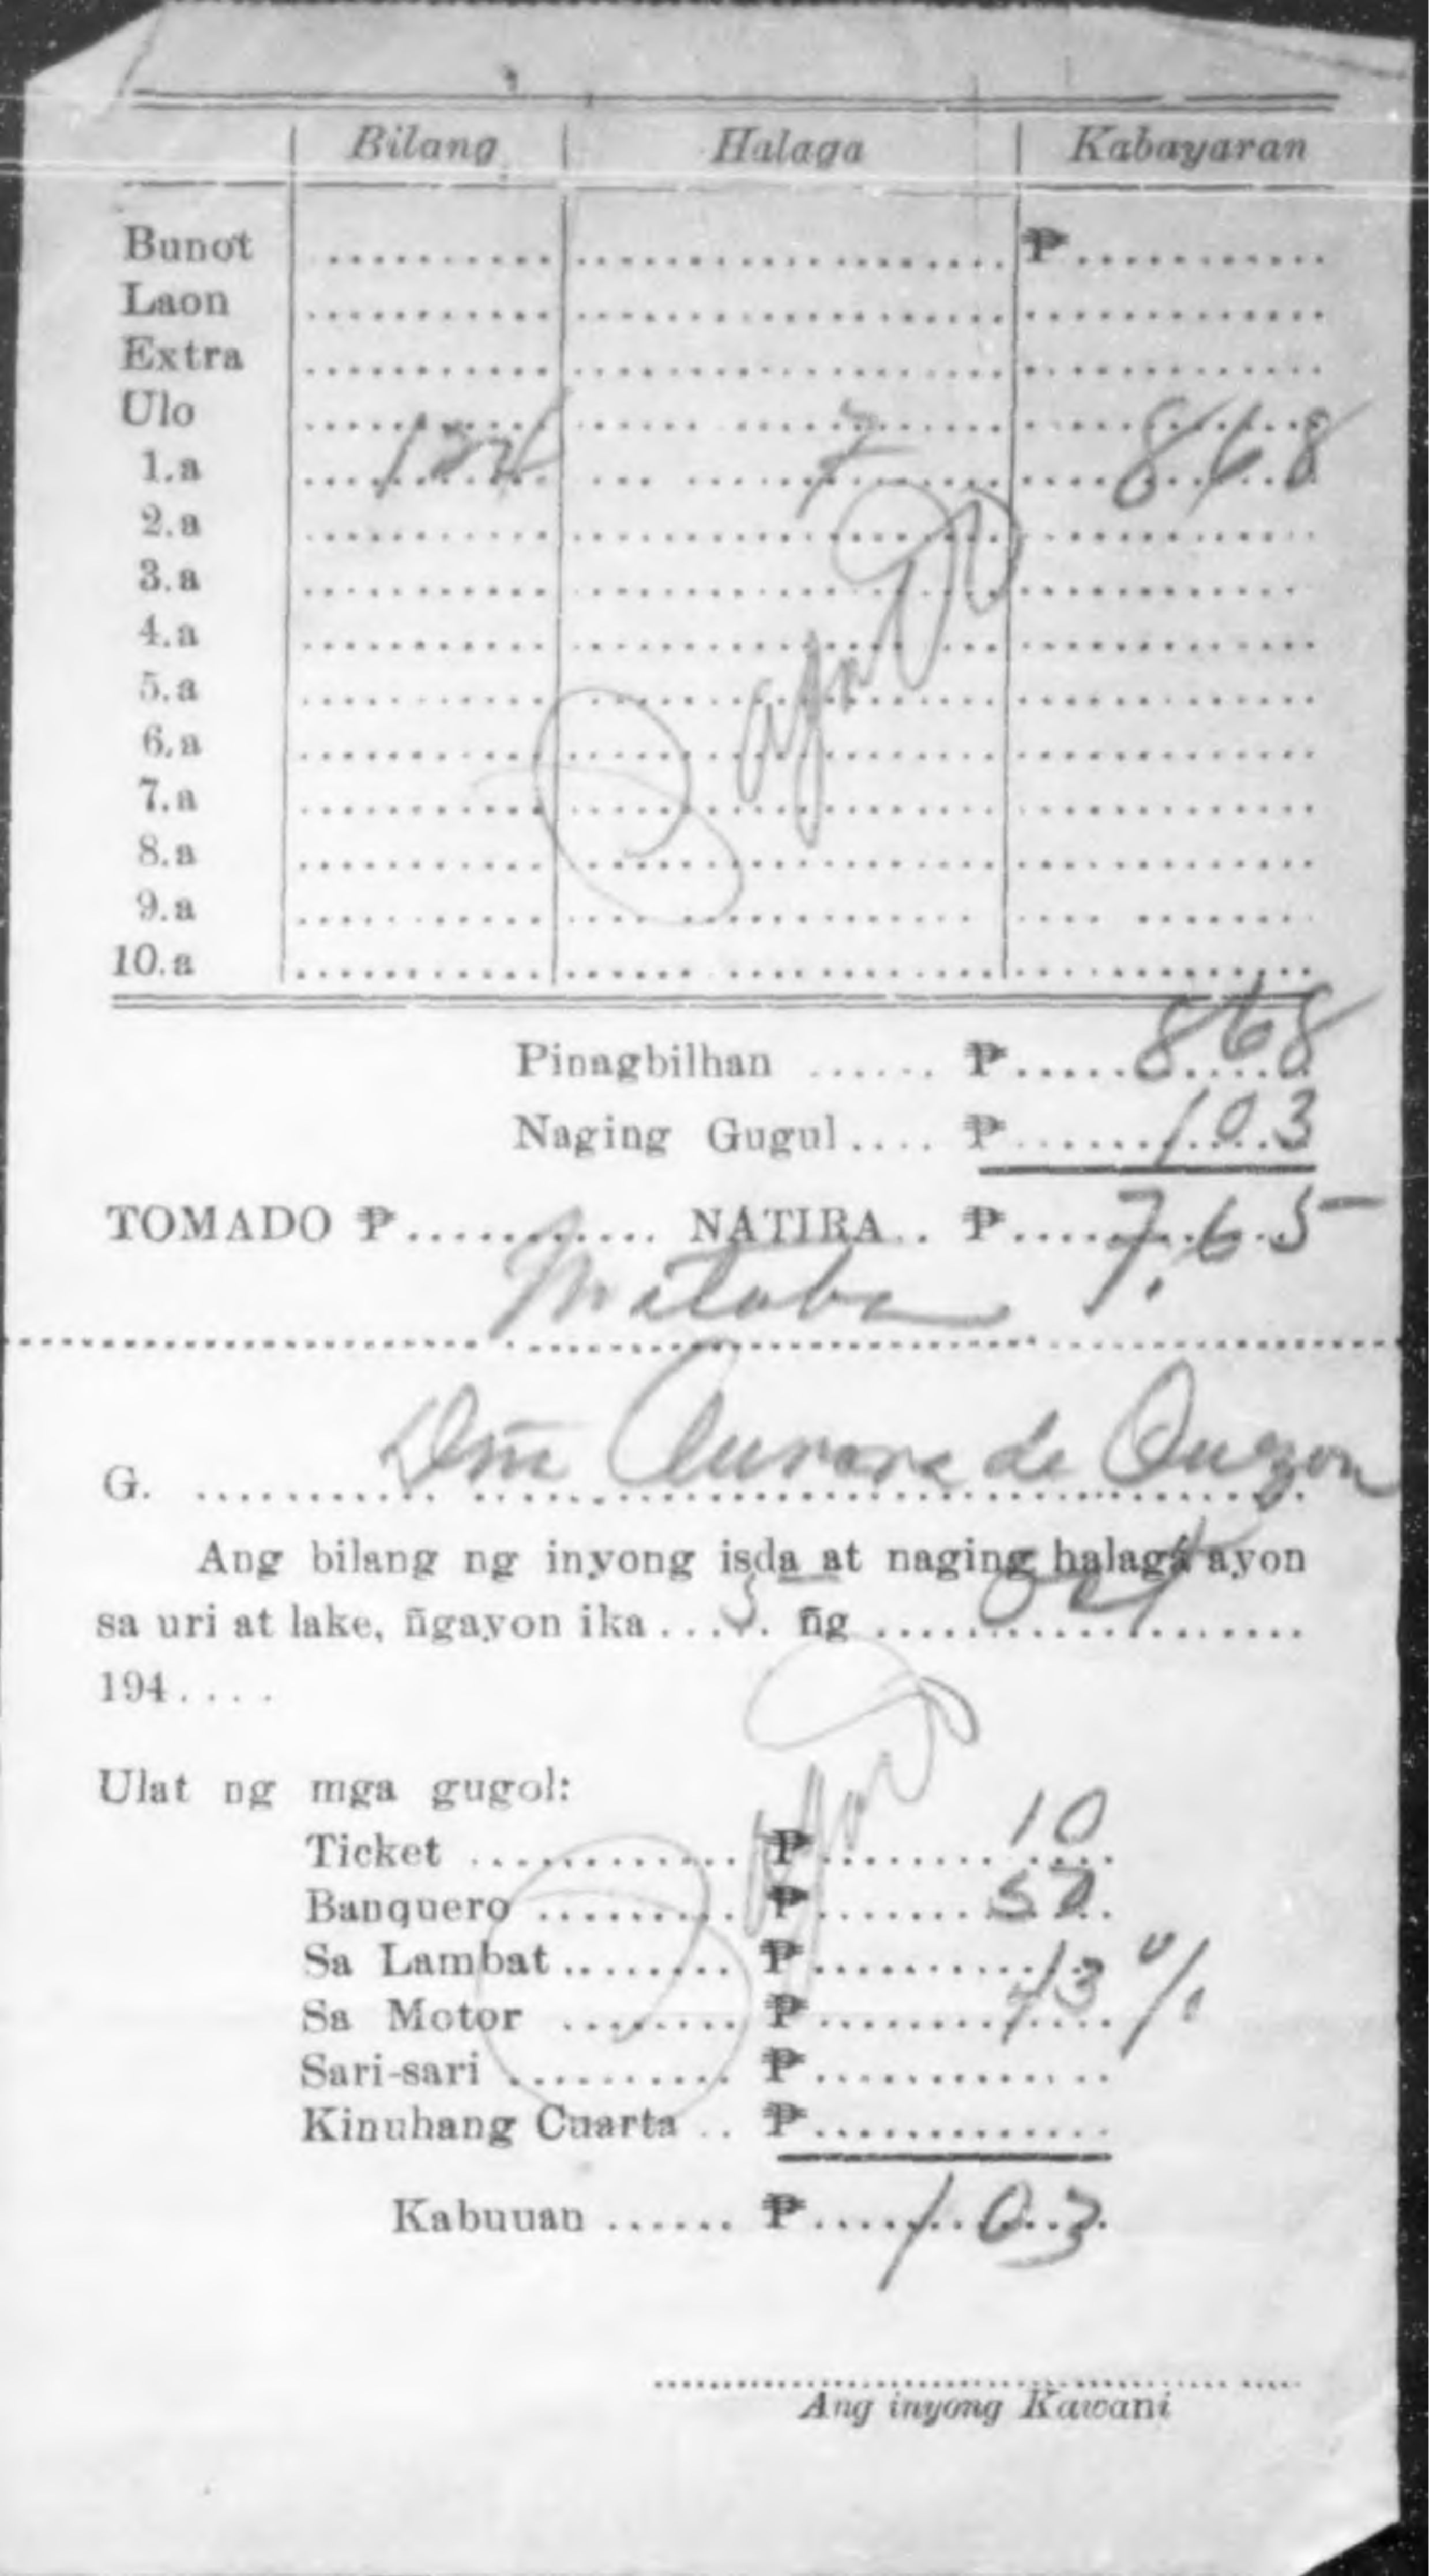 Bilang Halaga Kabayaran
Bunot ₱
Laon
Extra
Ulo
1.a 124 7 868
2.a
3.a
4.a
5.a
6.a
7.a
8.a
9.a
10.a
Pinagbilhan ...... ₱ 868
Naging Gugul .... ₱ 103
TOMADO ₱ ............ NATIRA .. ₱ 7.65
Mataba
G. Dña Aurora de Quezon
Ang bilang ng inyong isda at naging halaga ayon
sa uri at lake, ñgayon ika ... 5 . ñg Oct
194....
Ulat ng mga gugol:
Ticket ............ ₱ 10
Banquero ......... ₱ 50
Sa Lambat ........ ₱
Sa Motor ........ ₱ 43 %
Sari-sari .......... ₱
Kinuhang Cuarta .. ₱
Kabuuan ...... ₱ 103
Ang inyong Kawani